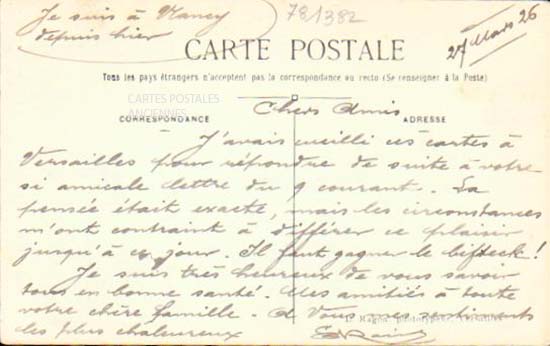 Je suis à Nancy
depuis hier
781382
27 Mars 26
CARTE POSTALE
Tous les pays étrangers n'acceptent pas la correspondance au recto (Se renseigner à la Poste)
CARTES POSTALES
ANCIENNES
CORRESPONDANCE
ADRESSE
Chers Amis
J'avais cueilli ces cartes à
Versailles pour répondre de suite à votre
si amicale lettre du 9 courant. La
pensée était exacte, mais les circonstances
m'ont contraint à différer ce plaisir
jusqu'à ce jour. Il faut gagner le bifteck!
Je suis très heureux de vous savoir
tous en bonne santé. Mes amitiés à toute
votre chère famille. A Vous mes sentiments
les plus chaleureux
L. Ragon